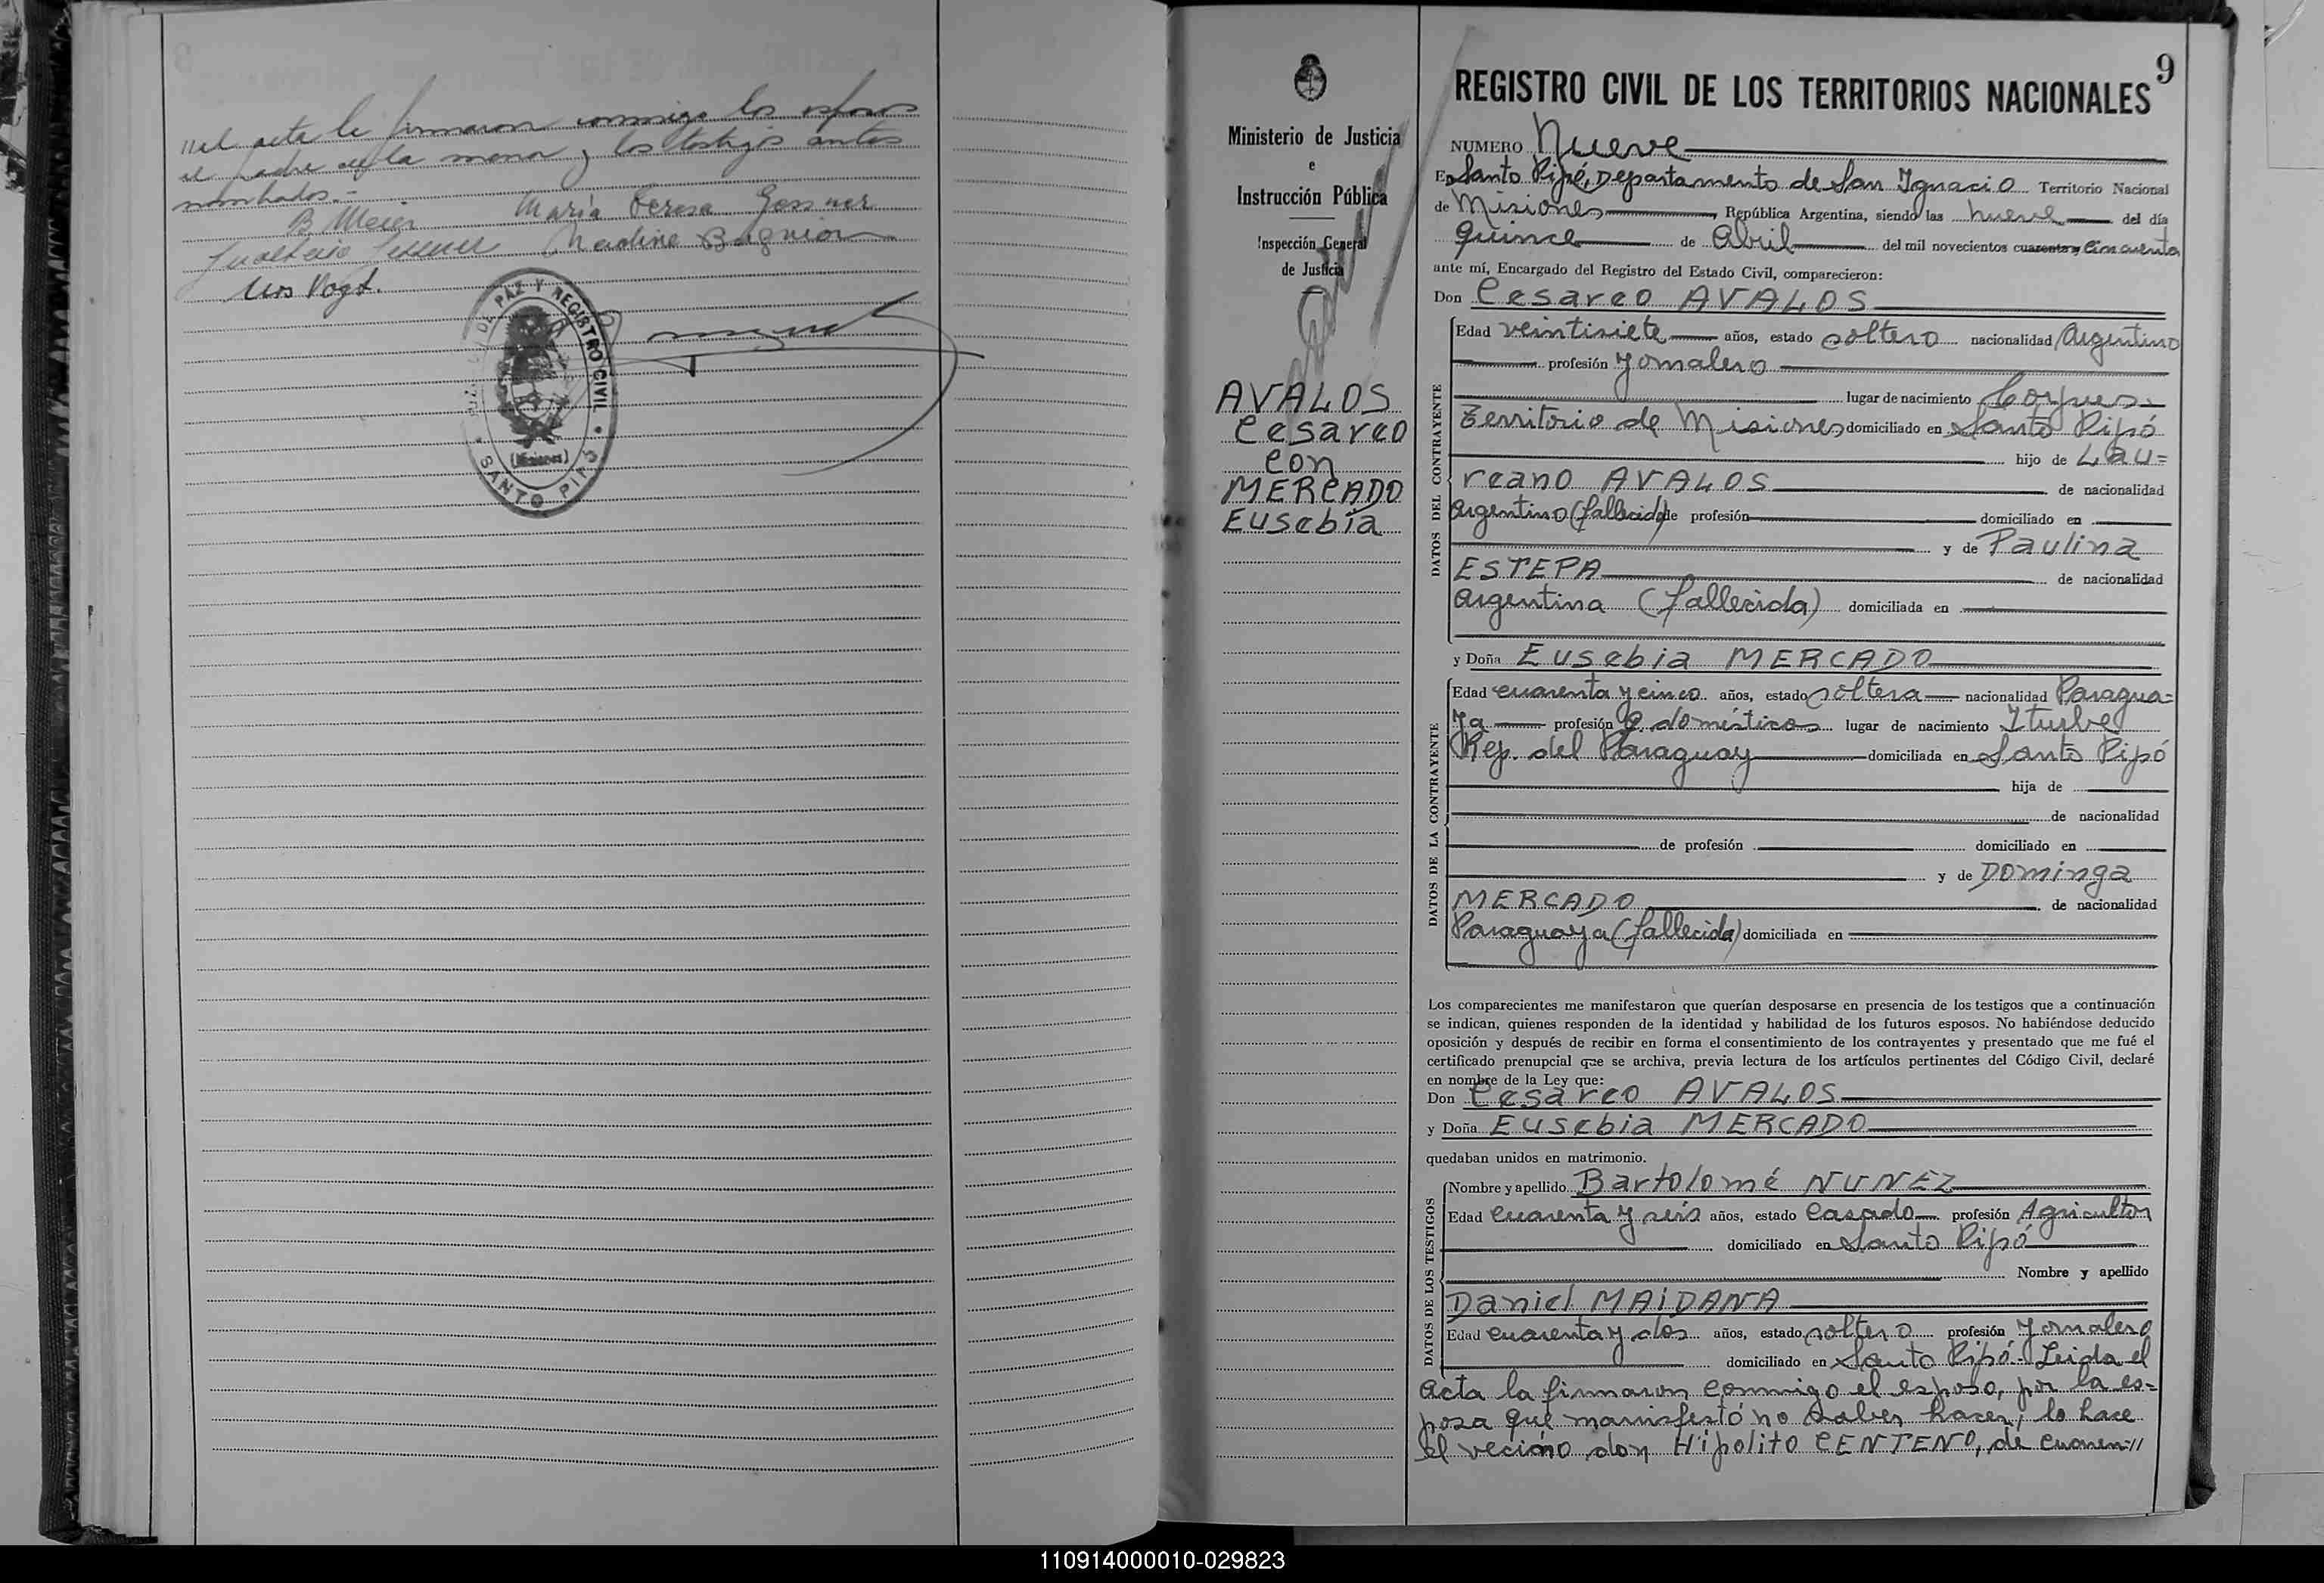 nel acta le firmaron conmigo los esposos
el padre de la menor y los testigos antes
nombrados.-
B. Meier María Teresa Gessner
Nadine Bagnion
Urs Vogt.
DE PAZ Y REGISTRO CIVIL
(Misiones)
SANTO PIPÓ
Ministerio de Justicia
e
Instrucción Pública
Inspección General
de Justicia
AVALOS
Cesareo
con
MERCADO
Eusebia
9
REGISTRO CIVIL DE LOS TERRITORIOS NACIONALES
NUMERO Nueve
En Santo Pipó, Departamento de San Ignacio Territorio Nacional
de Misiones, República Argentina, siendo las nueve del día
quince de Abril del mil novecientos cuarenta y cincuenta
ante mí, Encargado del Registro del Estado Civil, comparecieron:
Don Cesareo AVALOS
DATOS DEL CONTRAYENTE
Edad veintisiete años, estado soltero nacionalidad Argentino
profesión Jornalero
lugar de nacimiento Corpus.
Territorio de Misiones domiciliado en Santo Pipó
hijo de Lau=
reano AVALOS de nacionalidad
Argentino (fallecido) de profesión domiciliado en
y de Paulina
ESTEPA de nacionalidad
Argentina (fallecida) domiciliada en
y Doña Eusebia MERCADO
DATOS DE LA CONTRAYENTE
Edad cuarenta y cinco años, estado soltera nacionalidad Paragua=
ya profesión Q. domésticos lugar de nacimiento Iturbe
Rep. del Paraguay domiciliada en Santo Pipó
hija de
de nacionalidad
de profesión domiciliado en
y de Dominga
MERCADO de nacionalidad
Paraguaya (fallecida) domiciliada en
Los comparecientes me manifestaron que querían desposarse en presencia de los testigos que a continuación
se indican, quienes responden de la identidad y habilidad de los futuros esposos. No habiéndose deducido
oposición y después de recibir en forma el consentimiento de los contrayentes y presentado que me fué el
certificado prenupcial que se archiva, previa lectura de los artículos pertinentes del Código Civil, declaré
en nombre de la Ley que:
Don Cesareo AVALOS
y Doña Eusebia MERCADO
quedaban unidos en matrimonio.
DATOS DE LOS TESTIGOS
Nombre y apellido Bartolomé NUNEZ
Edad cuarenta y seis años, estado casado profesión Agricultor
domiciliado en Santo Pipó
Nombre y apellido
Daniel MAIDANA
Edad cuarenta y dos años, estado soltero profesión Jornalero
domiciliado en Santo Pipó.- Leida el
acta la firmaron conmigo el esposo, por la es=
posa que manifestó no saber hacer, lo hace
el vecino don Hipolito CENTENO, de cuaren=//
110914000010-029823